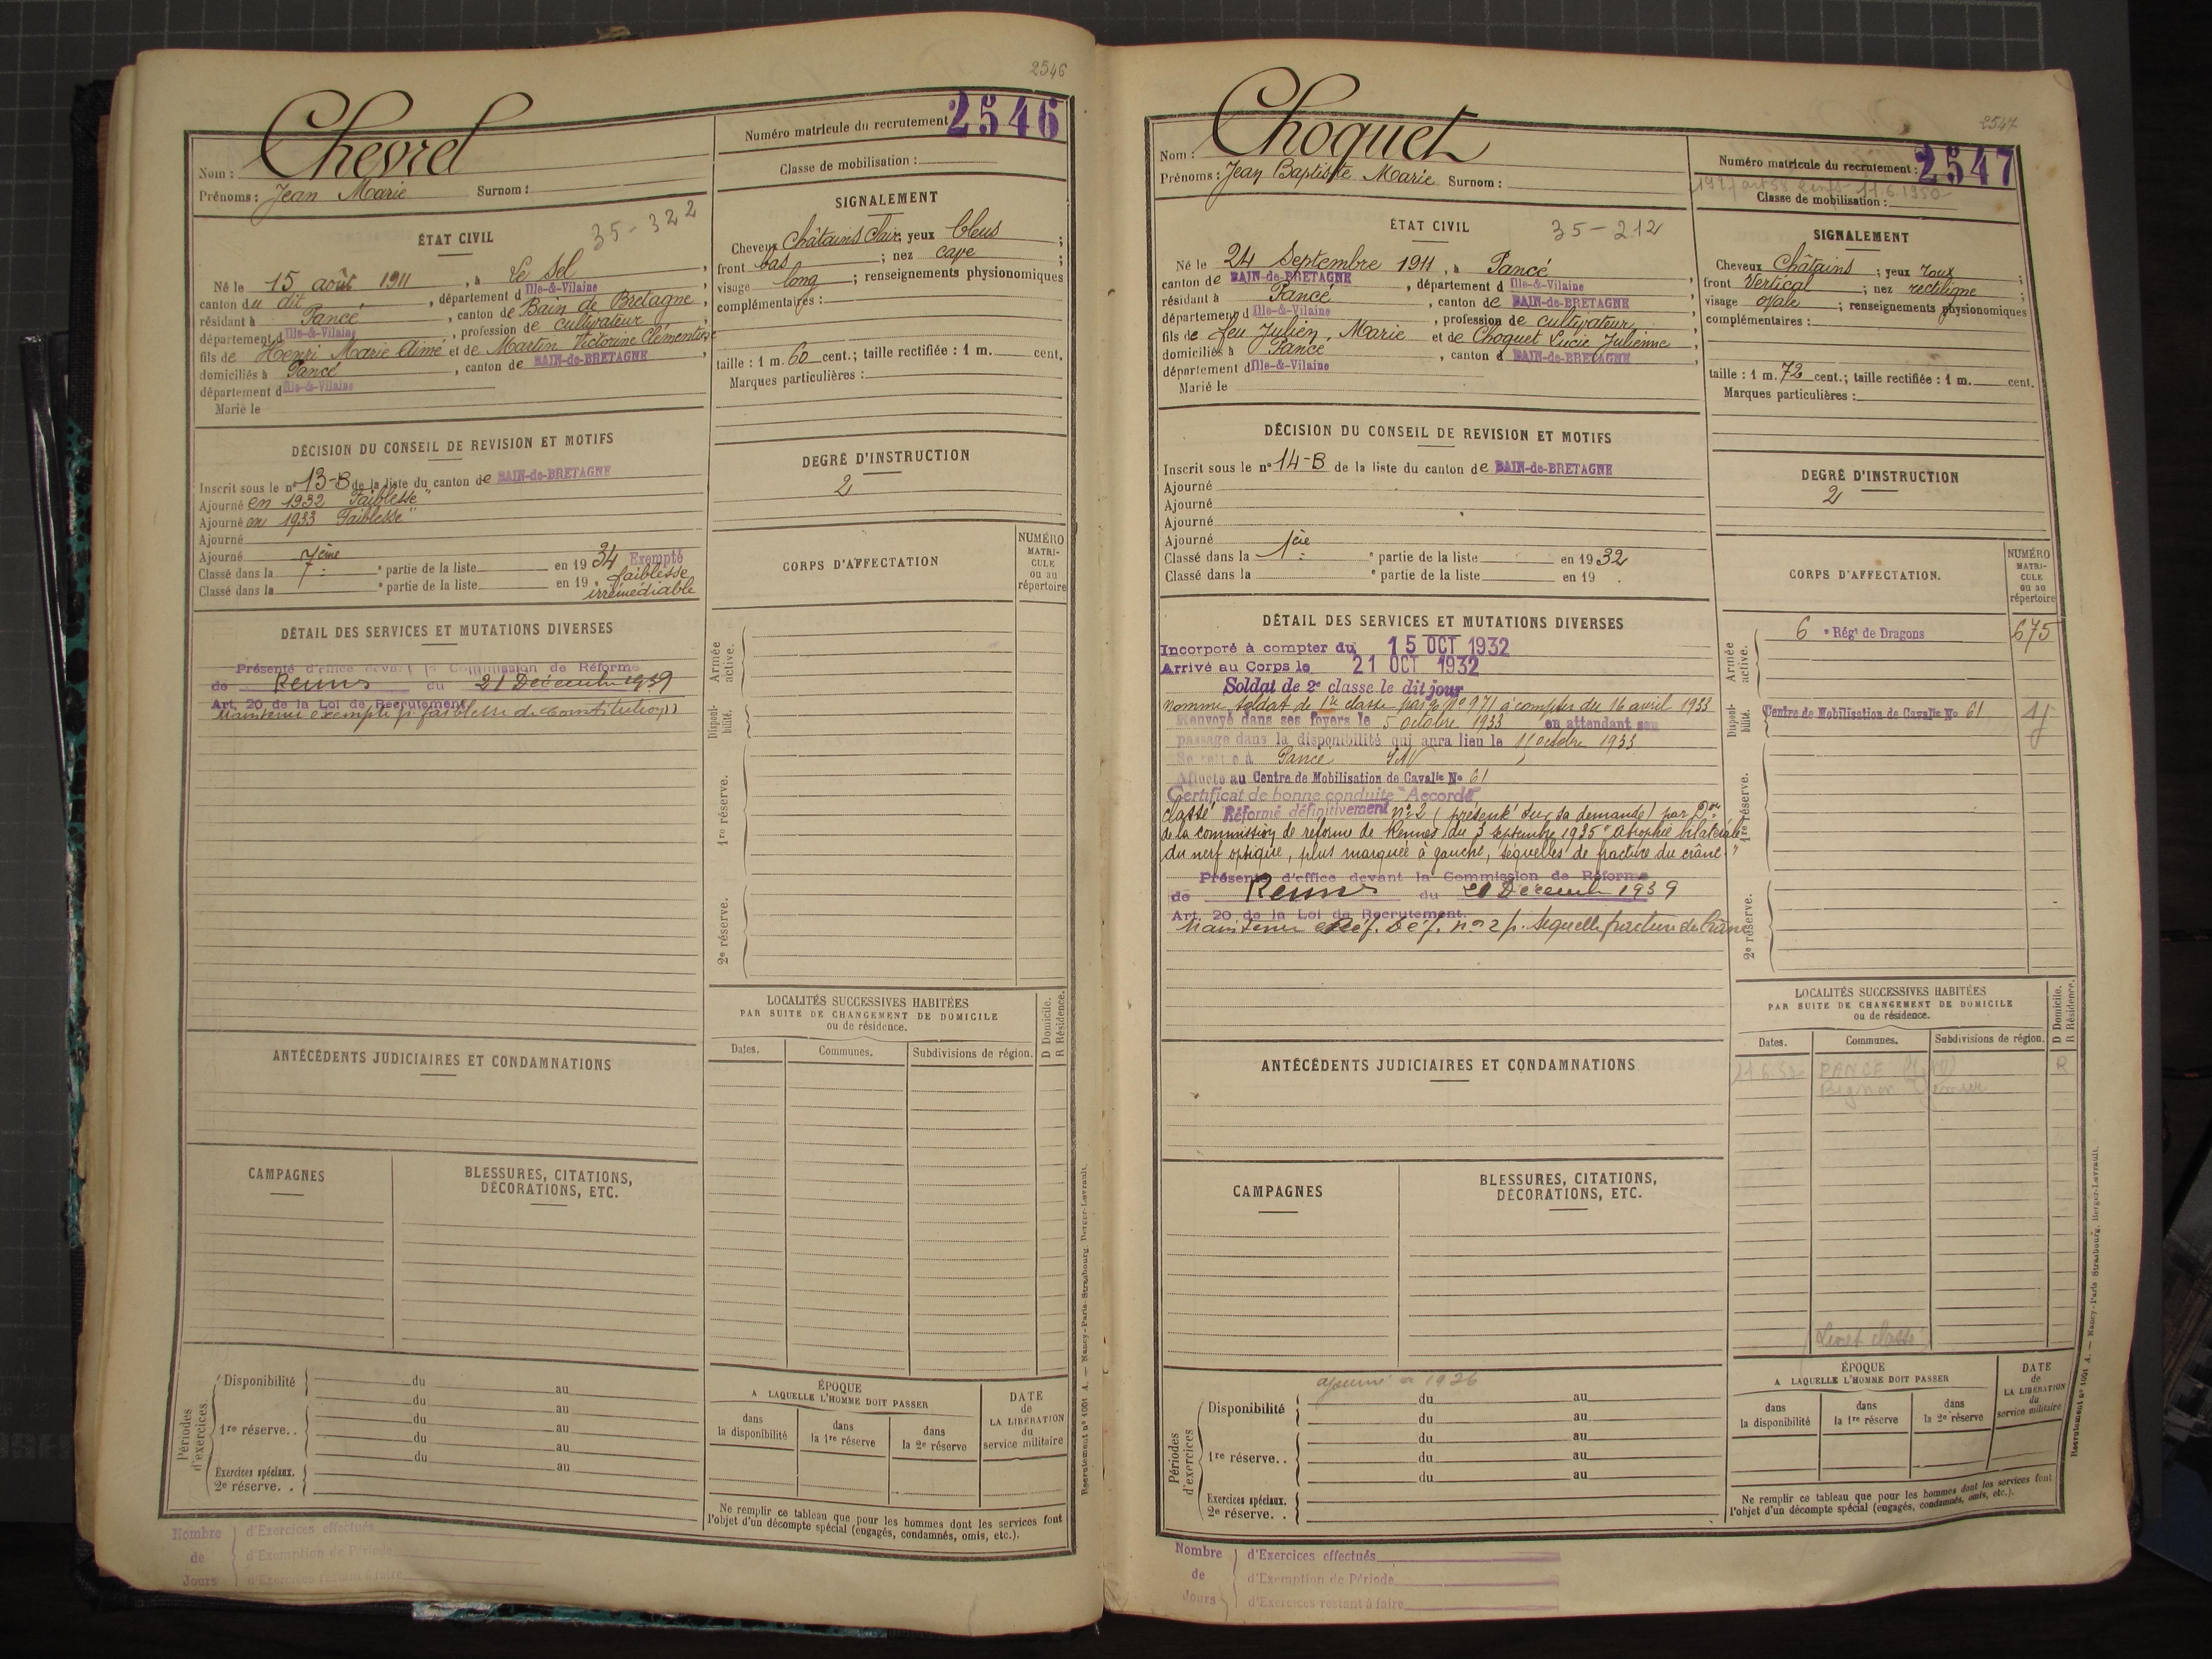 2546
Chevrel
Nom :
Prénoms : Jean Marie Surnom :
Numéro matricule du recrutement 2546
Classe de mobilisation :
ÉTAT CIVIL
35-322
Né le 15 août 1911, à Le Sel,
canton du dit, département d Ille-&-Vilaine
résidant à Pancé, canton de Bain de Bretagne,
département d Ille-&-Vilaine, profession de cultivateur
fils de Henri Marie Aimé et de Martin Victorine Clémentine
domiciliés à Pancé, canton de BAIN-de-BRETAGNE,
département d Ille-&-Vilaine
Marié le
SIGNALEMENT
Cheveux Châtains clair; yeux bleus ;
front bas ; nez cave ;
visage long ; renseignements physionomiques
complémentaires :
taille : 1 m. 60 cent.; taille rectifiée : 1 m. cent.
Marques particulières :
DÉCISION DU CONSEIL DE REVISION ET MOTIFS
Inscrit sous le n° 13-B de la liste du canton de BAIN-de-BRETAGNE
Ajourné en 1932 "Faiblesse"
Ajourné en 1933 "Faiblesse"
Ajourné
Ajourné
Classé dans la 7ème partie de la liste en 1934 Exempté
Classé dans la partie de la liste en 19 . faiblesse
irrémédiable
DEGRÉ D'INSTRUCTION
2
CORPS D'AFFECTATION
NUMÉRO
MATRI-
CULE
ou au
répertoire
DÉTAIL DES SERVICES ET MUTATIONS DIVERSES
Présenté d'office devant la Commission de Réforme
de Rennes du 21 Décembre 1939
Art. 20 de la Loi de Recrutement
Maintenu exempté p. faiblesse de constitution
Armée
active.
Disponi-
bilité.
1re réserve.
2e réserve.
LOCALITÉS SUCCESSIVES HABITÉES
PAR SUITE DE CHANGEMENT DE DOMICILE
ou de résidence.
D Domicile.
R Résidence.
Dates.
Communes.
Subdivisions de région.
ANTÉCÉDENTS JUDICIAIRES ET CONDAMNATIONS
CAMPAGNES
BLESSURES, CITATIONS,
DÉCORATIONS, ETC.
Périodes
d'exercices.
Disponibilité du au
du au
1re réserve.. du au
du au
du au
Exercices spéciaux.
2e réserve. .
ÉPOQUE
A LAQUELLE L'HOMME DOIT PASSER
dans
la disponibilité
dans
la 1re réserve
dans
la 2e réserve
DATE
de
LA LIBÉRATION
du
service militaire
Ne remplir ce tableau que pour les hommes dont les services font
l'objet d'un décompte spécial (engagés, condamnés, omis, etc.).
Recrutement n° 1001 A. — Nancy-Paris-Strasbourg, Berger-Levrault.
Nombre
de
Jours
d'Exercices effectués
d'Exemption de Période
d'Exercices restant à faire
2547
Choquet
Nom :
Prénoms : Jean Baptiste Marie Surnom :
Numéro matricule du recrutement : 2547
Classe de mobilisation :
ÉTAT CIVIL
35-212
Né le 24 Septembre 1911, à Pancé
canton de BAIN-de-BRETAGNE, département d Ille-&-Vilaine,
résidant à Pancé, canton de BAIN-de-BRETAGNE
département d Ille-&-Vilaine, profession de cultivateur
fils de feu Julien, Marie et de Choquet Lucie Julienne,
domiciliés à Pancé, canton d BAIN-de-BRETAGNE
département d Ille-&-Vilaine
Marié le
SIGNALEMENT
Cheveux Châtains ; yeux roux ;
front Vertical ; nez rectiligne ;
visage ovale ; renseignements physionomiques
complémentaires :
taille : 1 m. 72 cent.; taille rectifiée : 1 m. cent.
Marques particulières :
DÉCISION DU CONSEIL DE REVISION ET MOTIFS
Inscrit sous le n° 14-B de la liste du canton de BAIN-de-BRETAGNE
Ajourné
Ajourné
Ajourné
Ajourné
Classé dans la 1ère partie de la liste en 1932
Classé dans la partie de la liste en 19 .
DEGRÉ D'INSTRUCTION
2
CORPS D'AFFECTATION.
NUMÉRO
MATRI-
CULE
ou au
répertoire
DÉTAIL DES SERVICES ET MUTATIONS DIVERSES
Incorporé à compter du 15 OCT 1932
Arrivé au Corps le 21 OCT 1932
Soldat de 2e classe le dit jour
nommé soldat de 1re classe n° 971 à compter du 16 avril 1933
Renvoyé dans ses foyers le 5 octobre 1933 en attendant son
passage dans la disponibilité qui aura lieu le 11 octobre 1933
Se retire à Pancé
Affecté au Centre de Mobilisation de Cavalie No 61
Certificat de bonne conduite "Accordé"
classé Réformé définitivement n° 2 (présenté sur sa demande) par Don
de la commission de réforme de Rennes du 3 septembre 1935 "Atrophie bilatérale
du nerf optique, plus marquée à gauche, séquelles de fracture du crâne."
Présenté d'office devant la Commission de Réforme
de Rennes du 20 Décembre 1939
Art. 20 de la Loi de Recrutement.
Maintenu Réf. Déf. n° 2 p. séquelle fracture du crâne
Armée
active.
6e Régt de Dragons 675
Disponi-
bilité.
Centre de Mobilisation de Cavalie No 61
1re réserve.
2e réserve.
LOCALITÉS SUCCESSIVES HABITÉES
PAR SUITE DE CHANGEMENT DE DOMICILE
ou de résidence.
D Domicile.
R Résidence.
Dates.
Communes.
Subdivisions de région.
PANCE R
Livret classé
ANTÉCÉDENTS JUDICIAIRES ET CONDAMNATIONS
CAMPAGNES
BLESSURES, CITATIONS,
DÉCORATIONS, ETC.
Périodes
d'exercices
ajourné en 1936
Disponibilité du au
du au
1re réserve.. du au
du au
du au
Exercices spéciaux.
2e réserve. .
ÉPOQUE
A LAQUELLE L'HOMME DOIT PASSER
dans
la disponibilité
dans
la 1re réserve
dans
la 2e réserve
DATE
de
LA LIBÉRATION
du
service militaire
Ne remplir ce tableau que pour les hommes dont les services font
l'objet d'un décompte spécial (engagés, condamnés, omis, etc.).
Recrutement n° 1001 A. — Nancy-Paris-Strasbourg, Berger-Levrault.
Nombre
de
Jours
d'Exercices effectués
d'Exemption de Période
d'Exercices restant à faire